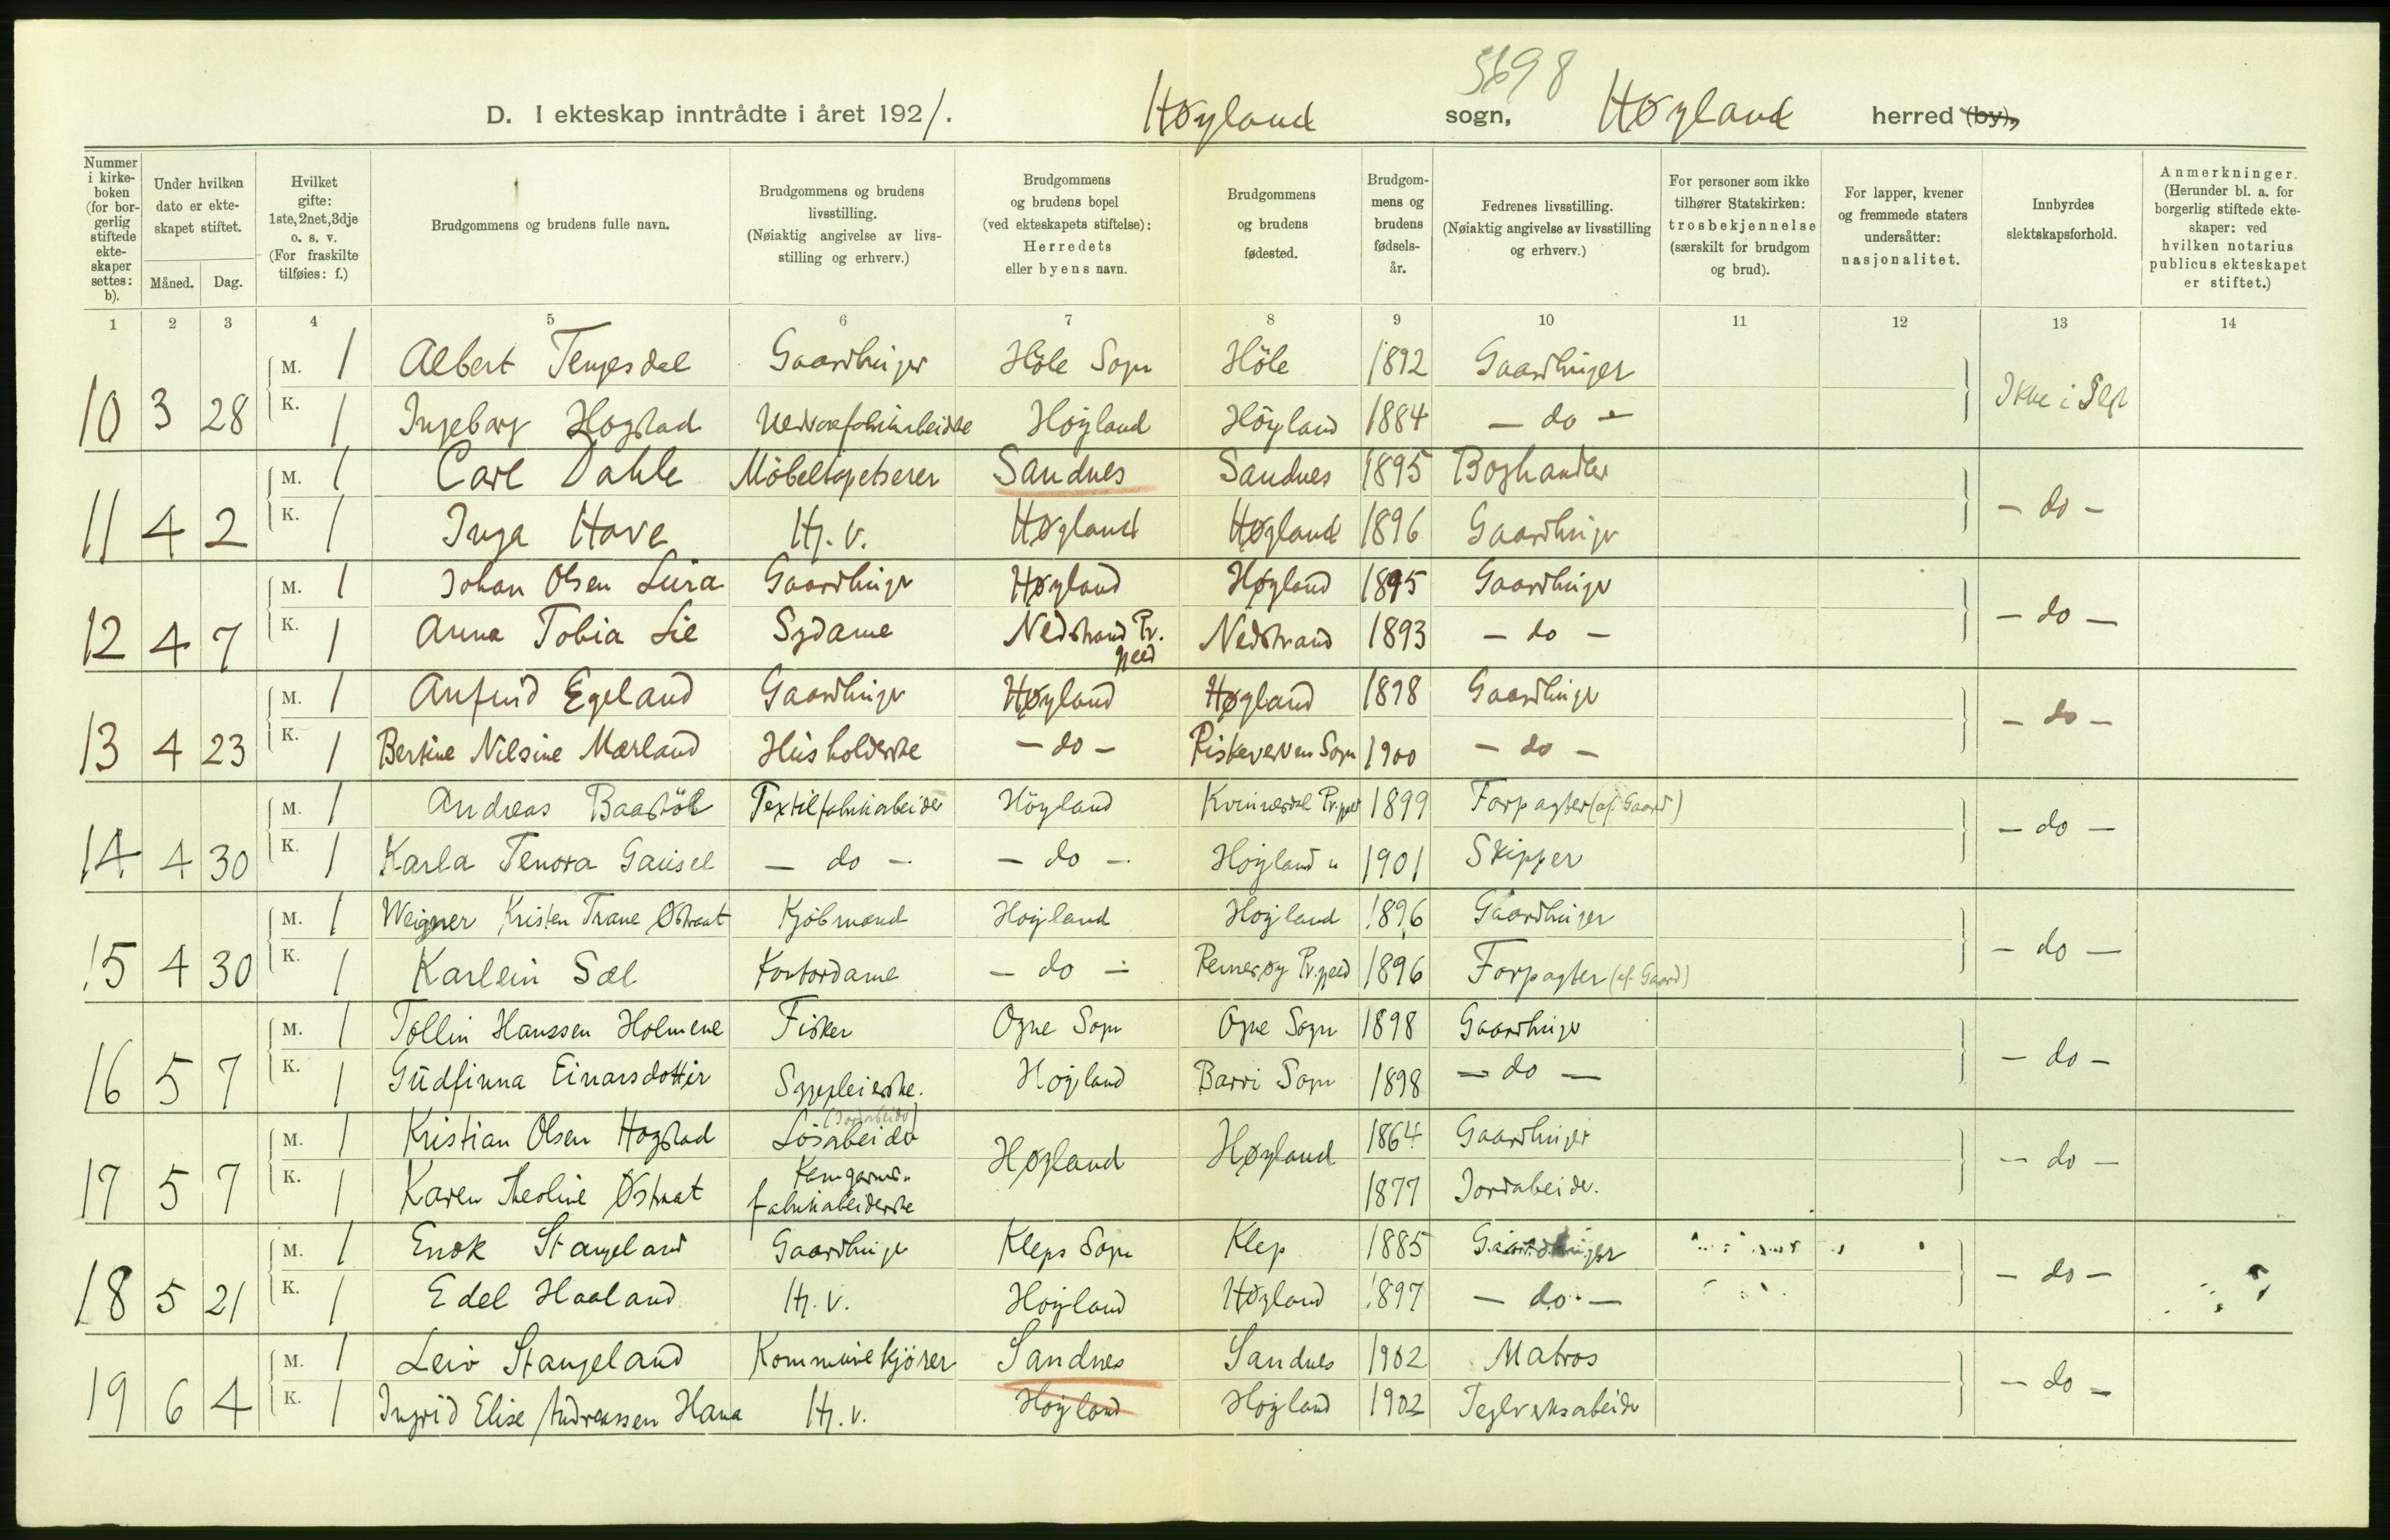 5698
D. I ekteskap inntrådte i året 1921. Høyland sogn, Høyland herred (by),
Nummer i kirkeboken (for borgerlig stiftede ekteskaper settes: b).
Under hvilken dato er ekteskapet stiftet.
Måned. Dag.
Hvilket gifte: 1ste, 2net, 3dje o. s. v. (For fraskilte tilføies: f.)
Brudgommens og brudens fulle navn.
Brudgommens og brudens livsstilling. (Nøiaktig angivelse av livsstilling og erhverv.)
Brudgommens og brudens bopel (ved ekteskapets stiftelse): Herredets eller byens navn.
Brudgommens og brudens fødested.
Brudgommens og brudens fødselsår.
Fedrenes livsstilling. (Nøiaktig angivelse av livsstilling og erhverv.)
For personer som ikke tilhører Statskirken: trosbekjennelse (særskilt for brudgom og brud).
For lapper, kvener og fremmede staters undersåtter: nasjonalitet.
Innbyrdes slektskapsforhold.
Anmerkninger. (Herunder bl. a. for borgerlig stiftede ekteskaper: ved hvilken notarius publicus ekteskapet er stiftet.)
1 2 3 4 5 6 7 8 9 10 11 12 13 14
M. 1 Albert Tengesdal Gaardbruger Höle Sogn Höle 1892 Gaardbruger
10 3 28 K. 1 Ingeborg Hogstad Uldvarefabrikarbeiderske Höyland Höyland 1884 — do — Ikke i Slegt
M. 1 Carl Dahle Möbeltapetserer Sandnes Sandnes 1895 Boghandler
11 4 2 K. 1 Inga Hove Hj. v. Høyland Høyland 1896 Gaardbruger — do —
M. 1 Johan Olsen Lura Gaardbruger Høyland Høyland 1895 Gaardbruger
12 4 7 K. 1 Anna Tobia Lie Sydame Nedstrand Pr.gjeld Nedstrand 1893 — do — — do —
M. 1 Anfind Egeland Gaardbruger Høyland Høyland 1898 Gaardbruger
13 4 23 K. 1 Bertine Nilsine Mærland Husholderske — do — Riskekverven Sogn 1900 — do — — do —
M. 1 Andreas Baastöl Textilfabrikarbeider Höyland Kvinesdal Pr.gjeld 1899 Forpagter (af Gaard)
14 4 30 K. 1 Karla Tenora Gausel — do — — do — Höyland " 1901 Skipper — do —
M. 1 Weigner Kristen Trane Østraat Kjöbmand Höyland Höyland 1896 Gaardbruger
15 4 30 K. 1 Karlein Sæl Kontordame — do — Rennesøy Pr.gjeld 1896 Forpagter (af Gaard) — do —
M. 1 Tollin Hanssen Holmene Fisker Ogne Sogn Ogne Sogn 1898 Gaardbruger
16 5 7 K. 1 Gudfinna Einarsdottir Sygepleierske. Höyland Barri Sogn 1898 — do — — do —
M. 1 Kristian Olsen Hogstad Lösarbeider (Jordarbeider) Høyland Høyland 1864 Gaardbruger
17 5 7 K. 1 Karen Theoline Østraat Kamgarnsfabrikarbeiderske 1877 Jordarbeider. — do —
M. 1 Enok Stangeland Gaardbruger Kleps Sogn Klep 1885 Gaardbruger
18 5 21 K. 1 Edel Haaland Hj. v. Höyland Høyland 1897 — do — — do —
M. 1 Leiv Stangeland Kommunekjörer Sandnes Sandnes 1902 Matros
19 6 4 K. 1 Ingrid Elise Andreassen Hana Hj. v. Höyland Höyland 1902 Teglverksarbeider — do —